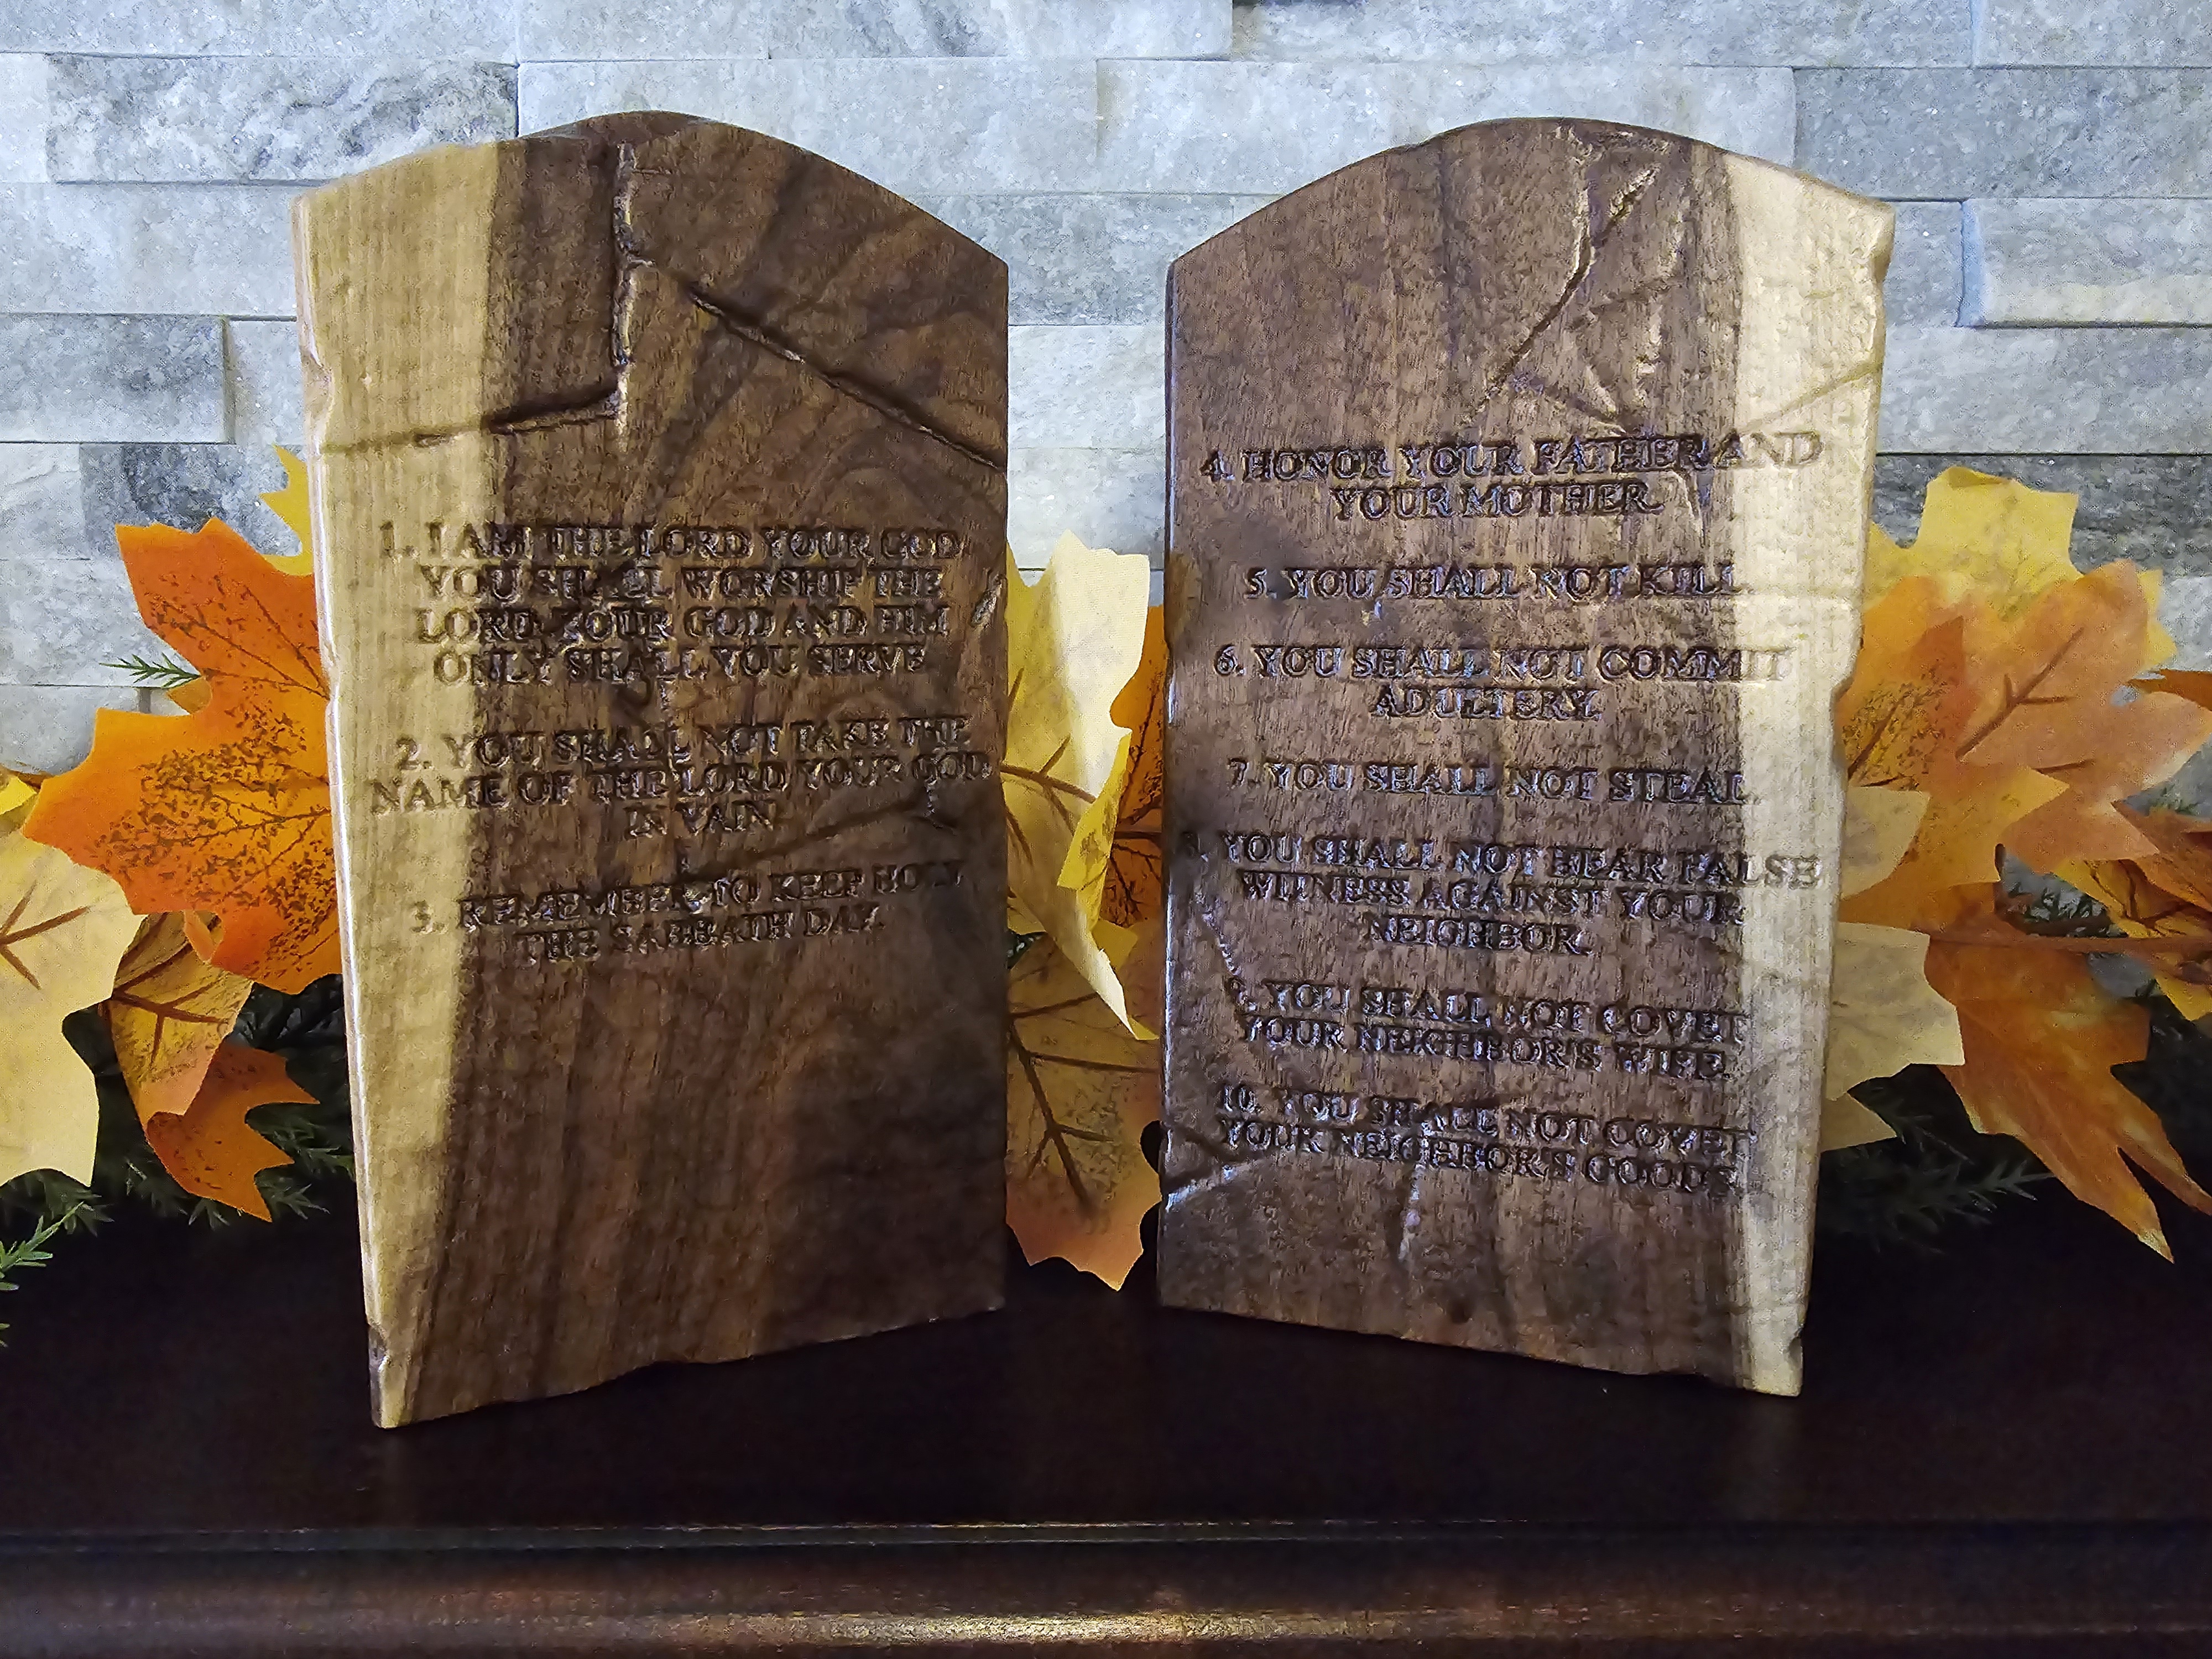 1. I AM THE LORD YOUR GOD
YOU SHALL WORSHIP THE
LORD YOUR GOD AND HIM
ONLY SHALL YOU SERVE
2. YOU SHALL NOT TAKE THE
NAME OF THE LORD YOUR GOD
IN VAIN
3. REMEMBER TO KEEP HOLY
THE SABBATH DAY.
4. HONOR YOUR FATHER AND
YOUR MOTHER.
5. YOU SHALL NOT KILL
6. YOU SHALL NOT COMMIT
ADULTERY.
7. YOU SHALL NOT STEAL.
8. YOU SHALL NOT BEAR FALSE
WITNESS AGAINST YOUR
NEIGHBOR.
9. YOU SHALL NOT COVET
YOUR NEIGHBOR'S WIFE.
10. YOU SHALL NOT COVET
YOUR NEIGHBOR'S GOODS.